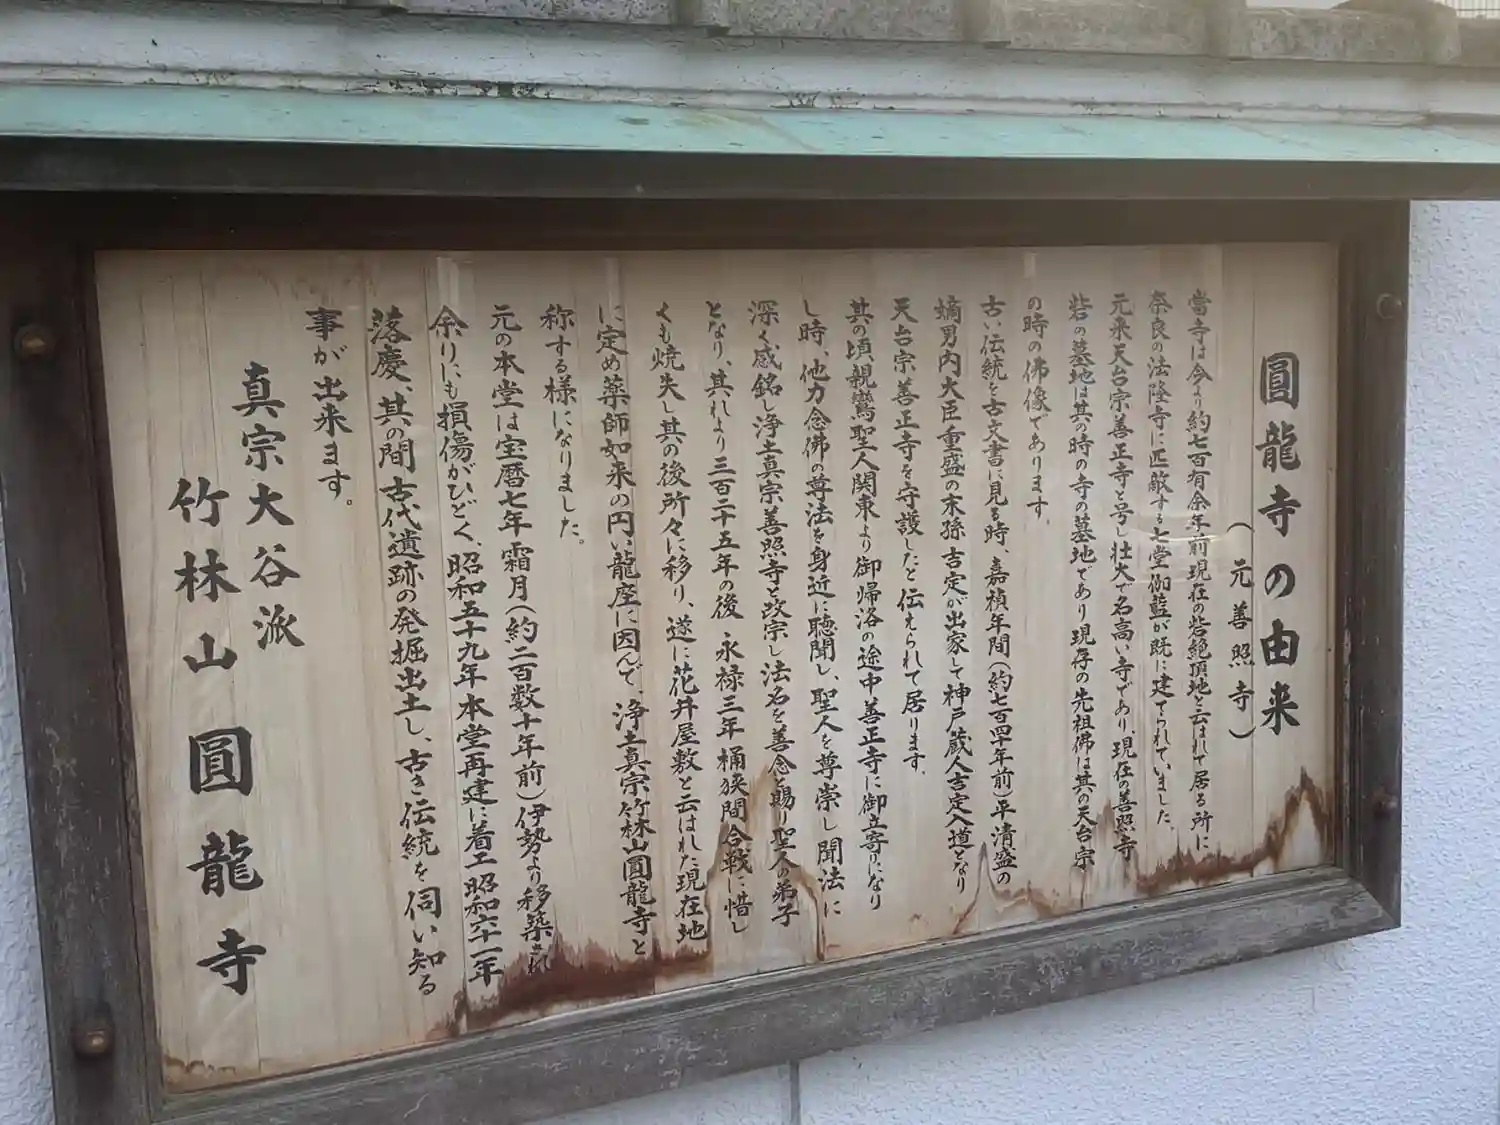 圓龍寺の由来
(元善照寺)
當寺は今より約七百有余年前現在の砦絶頂地と云はれて居る所に
奈良の法隆寺に匹敵する七堂伽藍が既に建てられていました。
元来天台宗善正寺と号し壮大で名高い寺であり、現在の善照寺
砦の墓地は其の時の寺の墓地であり現存の先祖佛は其の天台宗
の時の佛像であります。
古い伝統を古文書に見る時、嘉禎年間(約七百四年前)平清盛の
嫡男内大臣重盛の末孫吉定が出家して神戸蔵人吉定入道となり
天台宗善正寺を守護したと伝えられて居ります。
其の頃、親鸞聖人関東より御帰洛の途中善正寺に御立寄りになり
し時、他力念佛の尊法を身近に聴聞し、聖人を尊崇し聞法に
深く感銘し浄土真宗善照寺と改宗し法名を善念と賜り聖人の弟子
となり、其れより三百二十五年の後永禄三年桶狭間合戦に惜し
くも焼失し其の後所々に移り、遂に花井屋敷と云はれた現在地
に定め薬師如来の円い龍座に因んで、浄土真宗竹林山圓龍寺と
称する様になりました。
元の本堂は宝暦七年霜月(約二百数十年前)伊勢より移築され
余りにも損傷がひどく、昭和五十九年本堂再建に着工昭和六十一年
落慶、其の間古代遺跡の発掘出土し、古き伝統を伺い知る
事が出来ます。
真宗大谷派
竹林山圓龍寺